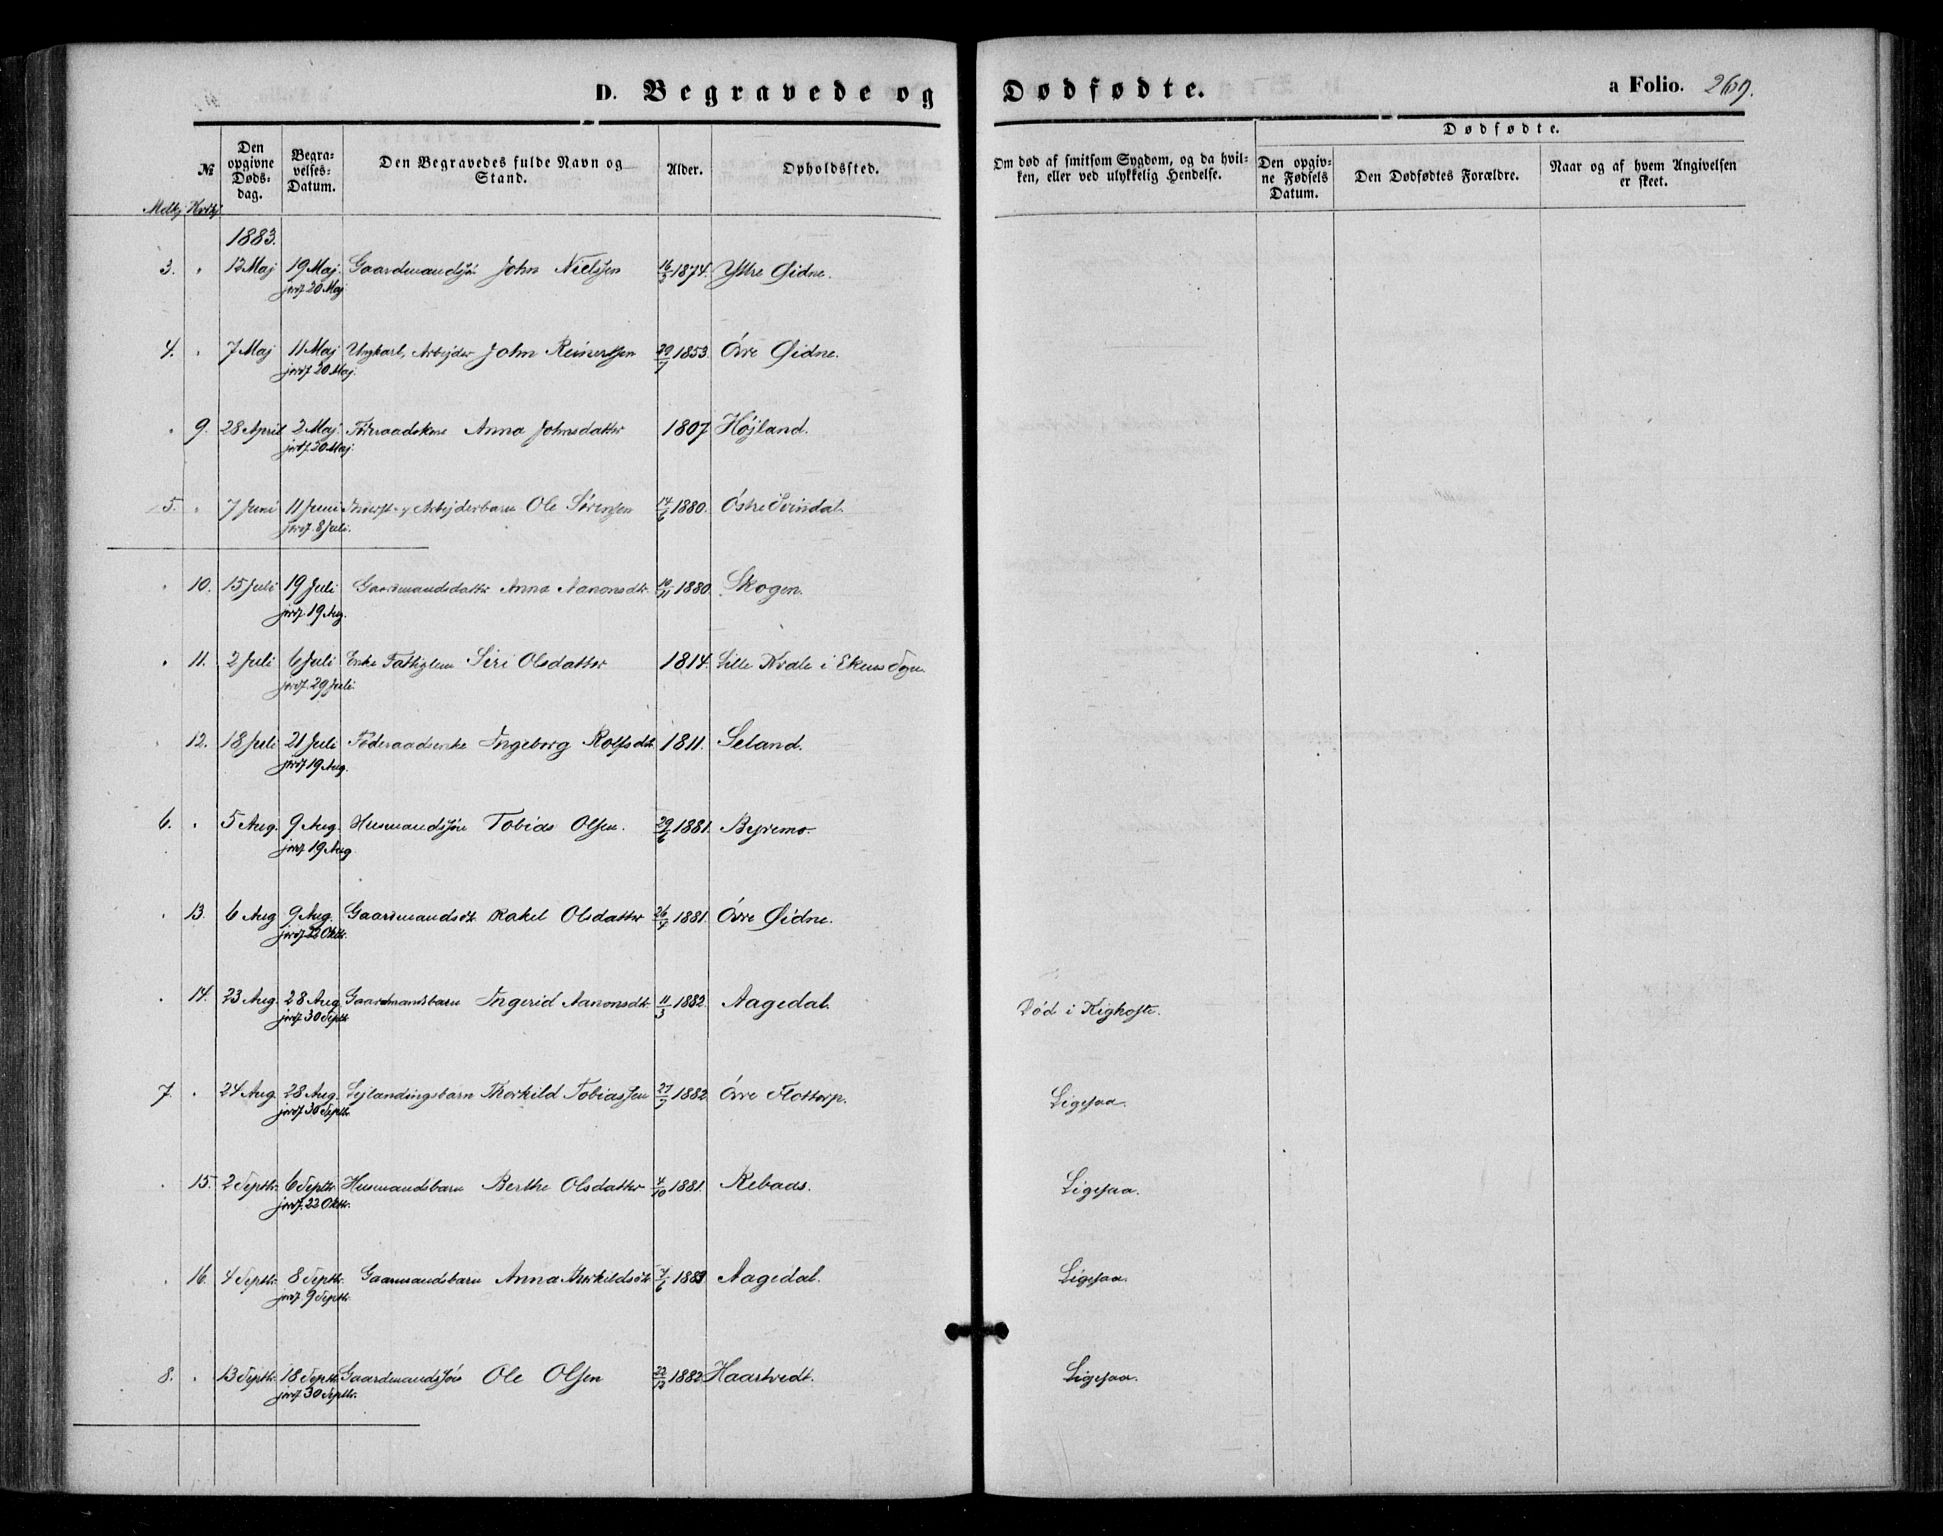 D. Begravede og Dødfødte. a Folio. 269.
Dødfødte.
№ Den opgivne Døds-dag. Begra-velses-Datum. Den Begravedes fulde Navn og Stand. Alder. Opholdssted. Om død af smitsom Sygdom, og da hvil-ken, eller ved ulykkelig Hendelse. Den opgiv-ne Fødsels Datum. Den Dødfødtes Forældre. Naar og af hvem Angivelsen er skeet.
Mdkj Kvdkj
1883.
3. " 12 Maj 19 Maj. Gaardmandssøn John Nielssen 16/3 1874. Yttre Øidne.
jordf 20 Maj
4. " 7 Maj 11 Maj Ungkarl, Arbejder John Reinertssen 29/7 1853. Övre Øidne.
jordf 20 Maj.
" 9. 28 April 2 Maj. Anna Johnsdatter 1807 Højland.
jordf. 20 Maj.
5. " 7 Juni 11 Juni Inderst- og Arbejderbarn Ole Sørenssen 14/6 1880. Östre Svindal.
jordf. 8 Juli.
" 10. 15 Juli 19 Juli Gaardmandsdatter Anna Aanonsdtr. 10/11 1880. Skogen.
jordf 19 Aug.
" 11. 2 Juli 6 Juli Enke Fattiglem Siri Olsdatter 1814. Lille Kvale i Ekens Sogn
jordf. 29 Juli.
" 12. 18 Juli 21 Juli Føderaadsenke Ingeborg Rolfsdtr. 1811. Seland.
jordf 19 Aug.
6. " 5 Aug. 9 Aug. Husmandssøn Tobias Olsen. 29/6 1881. Byremo.
jordf 19 Aug
" 13. 6 Aug 9 Aug. Gaardmandsdtr Rakel Olsdatter 26/7 1881. Övre Øidne.
jordf 22 Oktbr.
" 14. 23 Aug. 28 Aug. Gaardmandsbarn Ingerid Aanonsdtr. 11/3 1882. Aagedal. Død i Kighoste.
jordf. 30 Septbr
7. " 24 Aug. 28 Aug. Lejlændingsbarn Thorkild Tobiassen 27/7 1882 Övre Flottorp. Ligesaa.
jordf 30 Septbr.
" 15. 2 Septbr. 6 Septbr. Husmandsbarn Berthe Olsdatter 4/10 1881. Rebaas. Ligesaa.
jordf. 22 Oktbr.
" 16. 4 Septbr. 8 Septbr. Gaarmandsbarn Anna Thorkildsdtr 7/6 1883 Aagedal. Ligesaa.
jordf 9 Septbr.
8. " 13 Septbr. 18 Septbr. Gaardmandssøn Ole Olsen 22/12 1882 Haartvedt. Ligesaa.
jordf 30 Septbr.